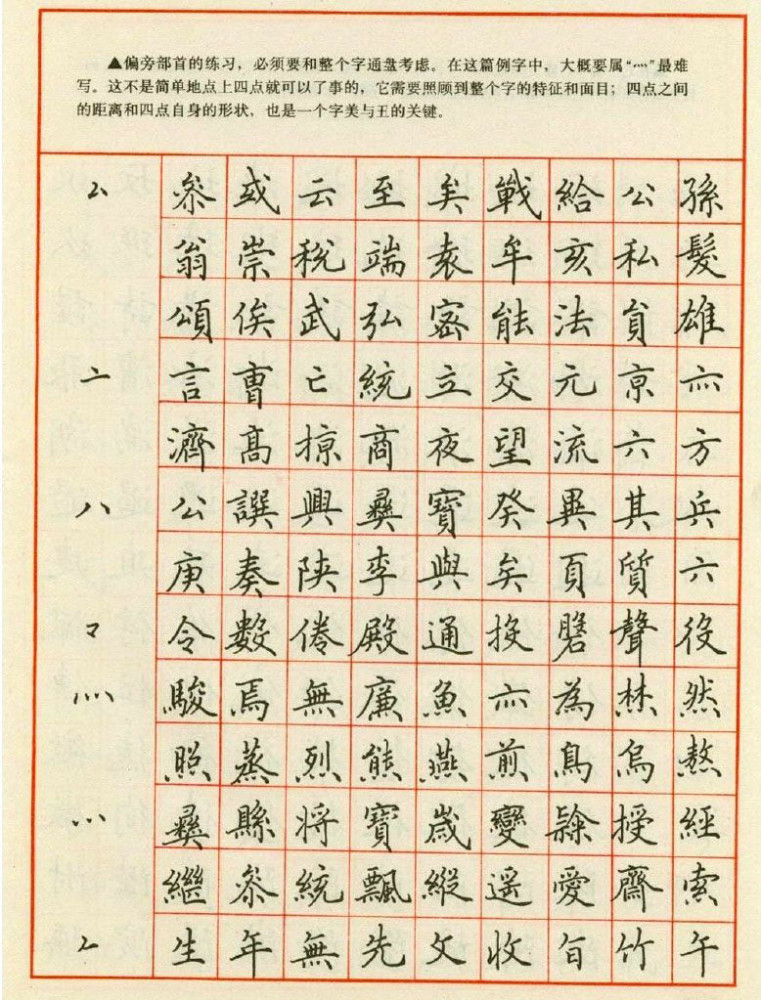 ▲偏旁部首的练习，必须要和整个字通盘考虑。在这篇例字中，大概要属“灬”最难
写。这不是简单地点上四点就可以了事的，它需要照顾到整个字的特征和面目；四点之间
的距离和四点自身的形状，也是一个字美与丑的关键。
厶 参 或 云 至 矣 戰 給 公 孫
翁 崇 税 端 袁 牟 亥 私 髮
頌 俟 武 弘 密 能 法 貟 雄
亠 言 曹 亡 統 立 交 元 京 亦
濟 高 掠 商 夜 望 流 六 方
八 公 譔 興 彝 寶 癸 異 其 兵
庚 奏 陕 李 與 矣 頁 質 六
令 數 倦 殿 通 投 聲 役
灬 駿 焉 無 廉 魚 亦 為 然
照 蒸 烈 熊 燕 煎 鳥 烏 熬
彝 縣 将 寶 歳 變 授 經
繼 参 統 飄 縱 遥 愛 齋 索
𠂉 生 年 無 先 攵 收 旨 竹 午